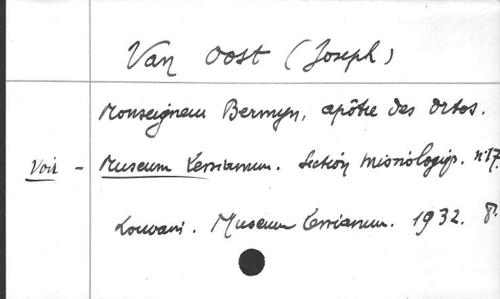 Van Oost (Joseph)
Monseigneur Bermyn, apôtre des Ortos.
Voir - Museum Lessianum. Section missiologiq. n°17.
Louvain. Museum Lessianum. 1932. 8°.